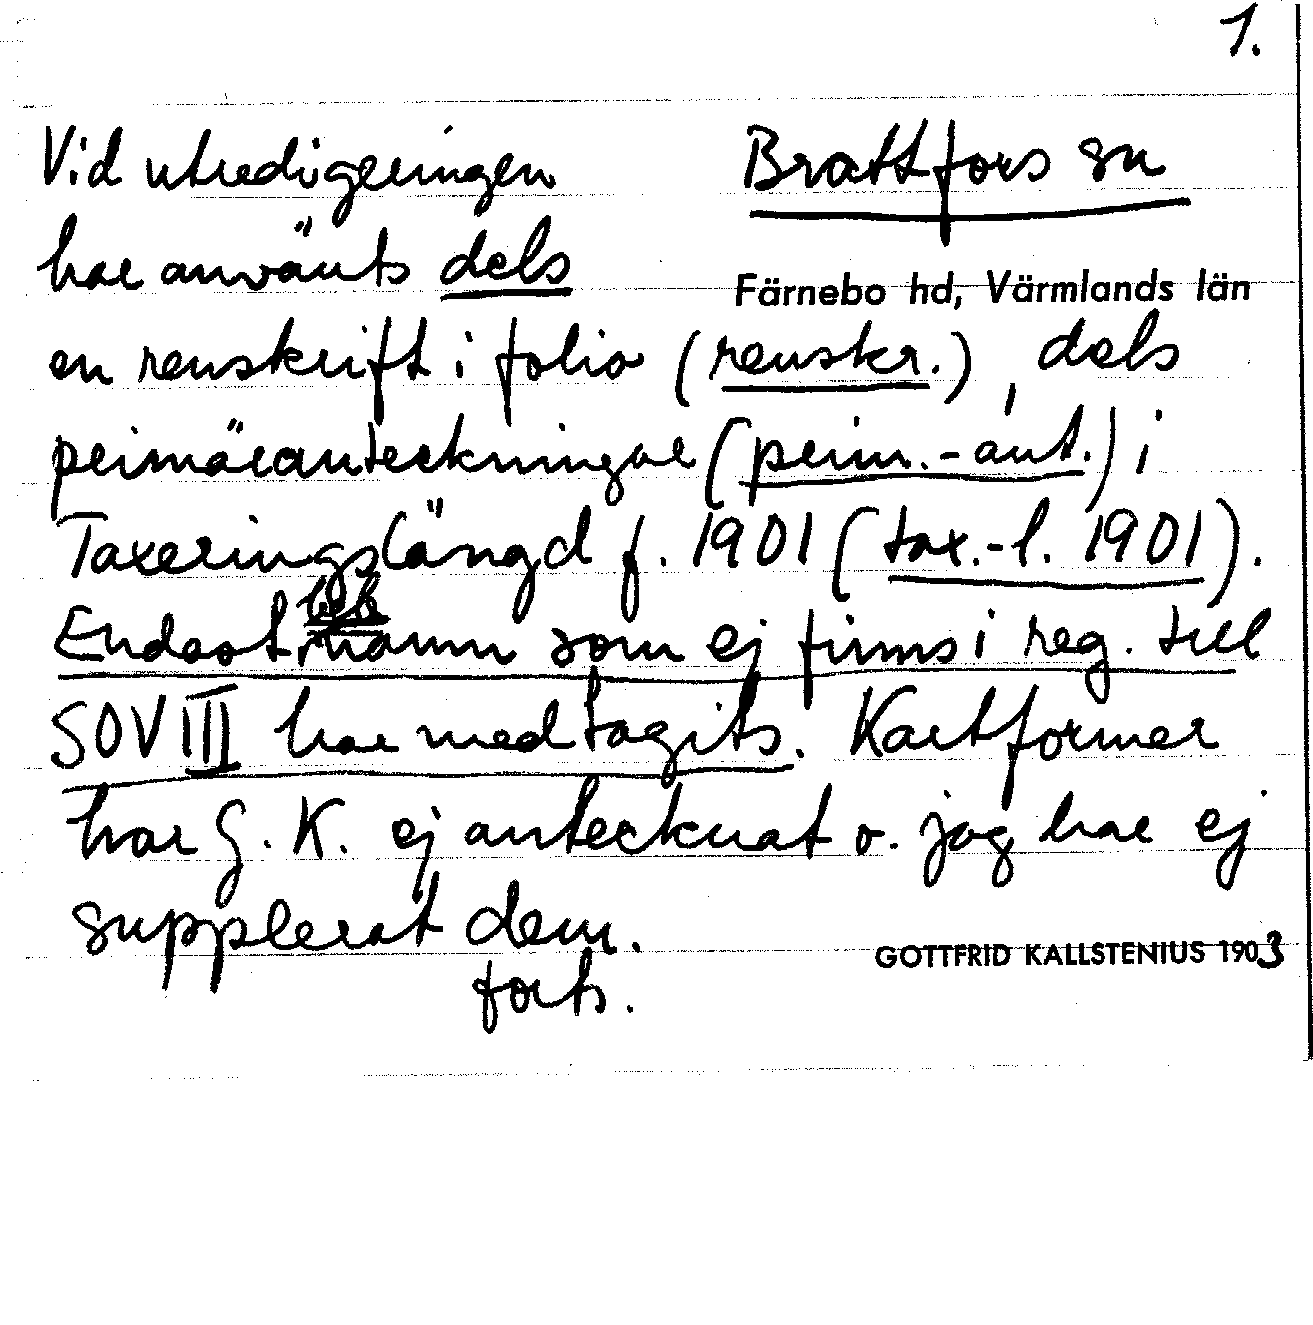 1.
Vid utredigeringen
Brattfors sn
har använts dels
Färnebo hd, Värmlands län
en renskrift i folio (renskr.), dels
primäranteckningar (prim.-ant.) i
Taxeringslängd f. 1901 (tax.-l. 1901).
Endast namn som ej finns i reg. till
SOV III har medtagits. Kartformer
har G. K. ej antecknat o. jag har ej
supplerat dem.
GOTTFRID KALLSTENIUS 1903
forts.